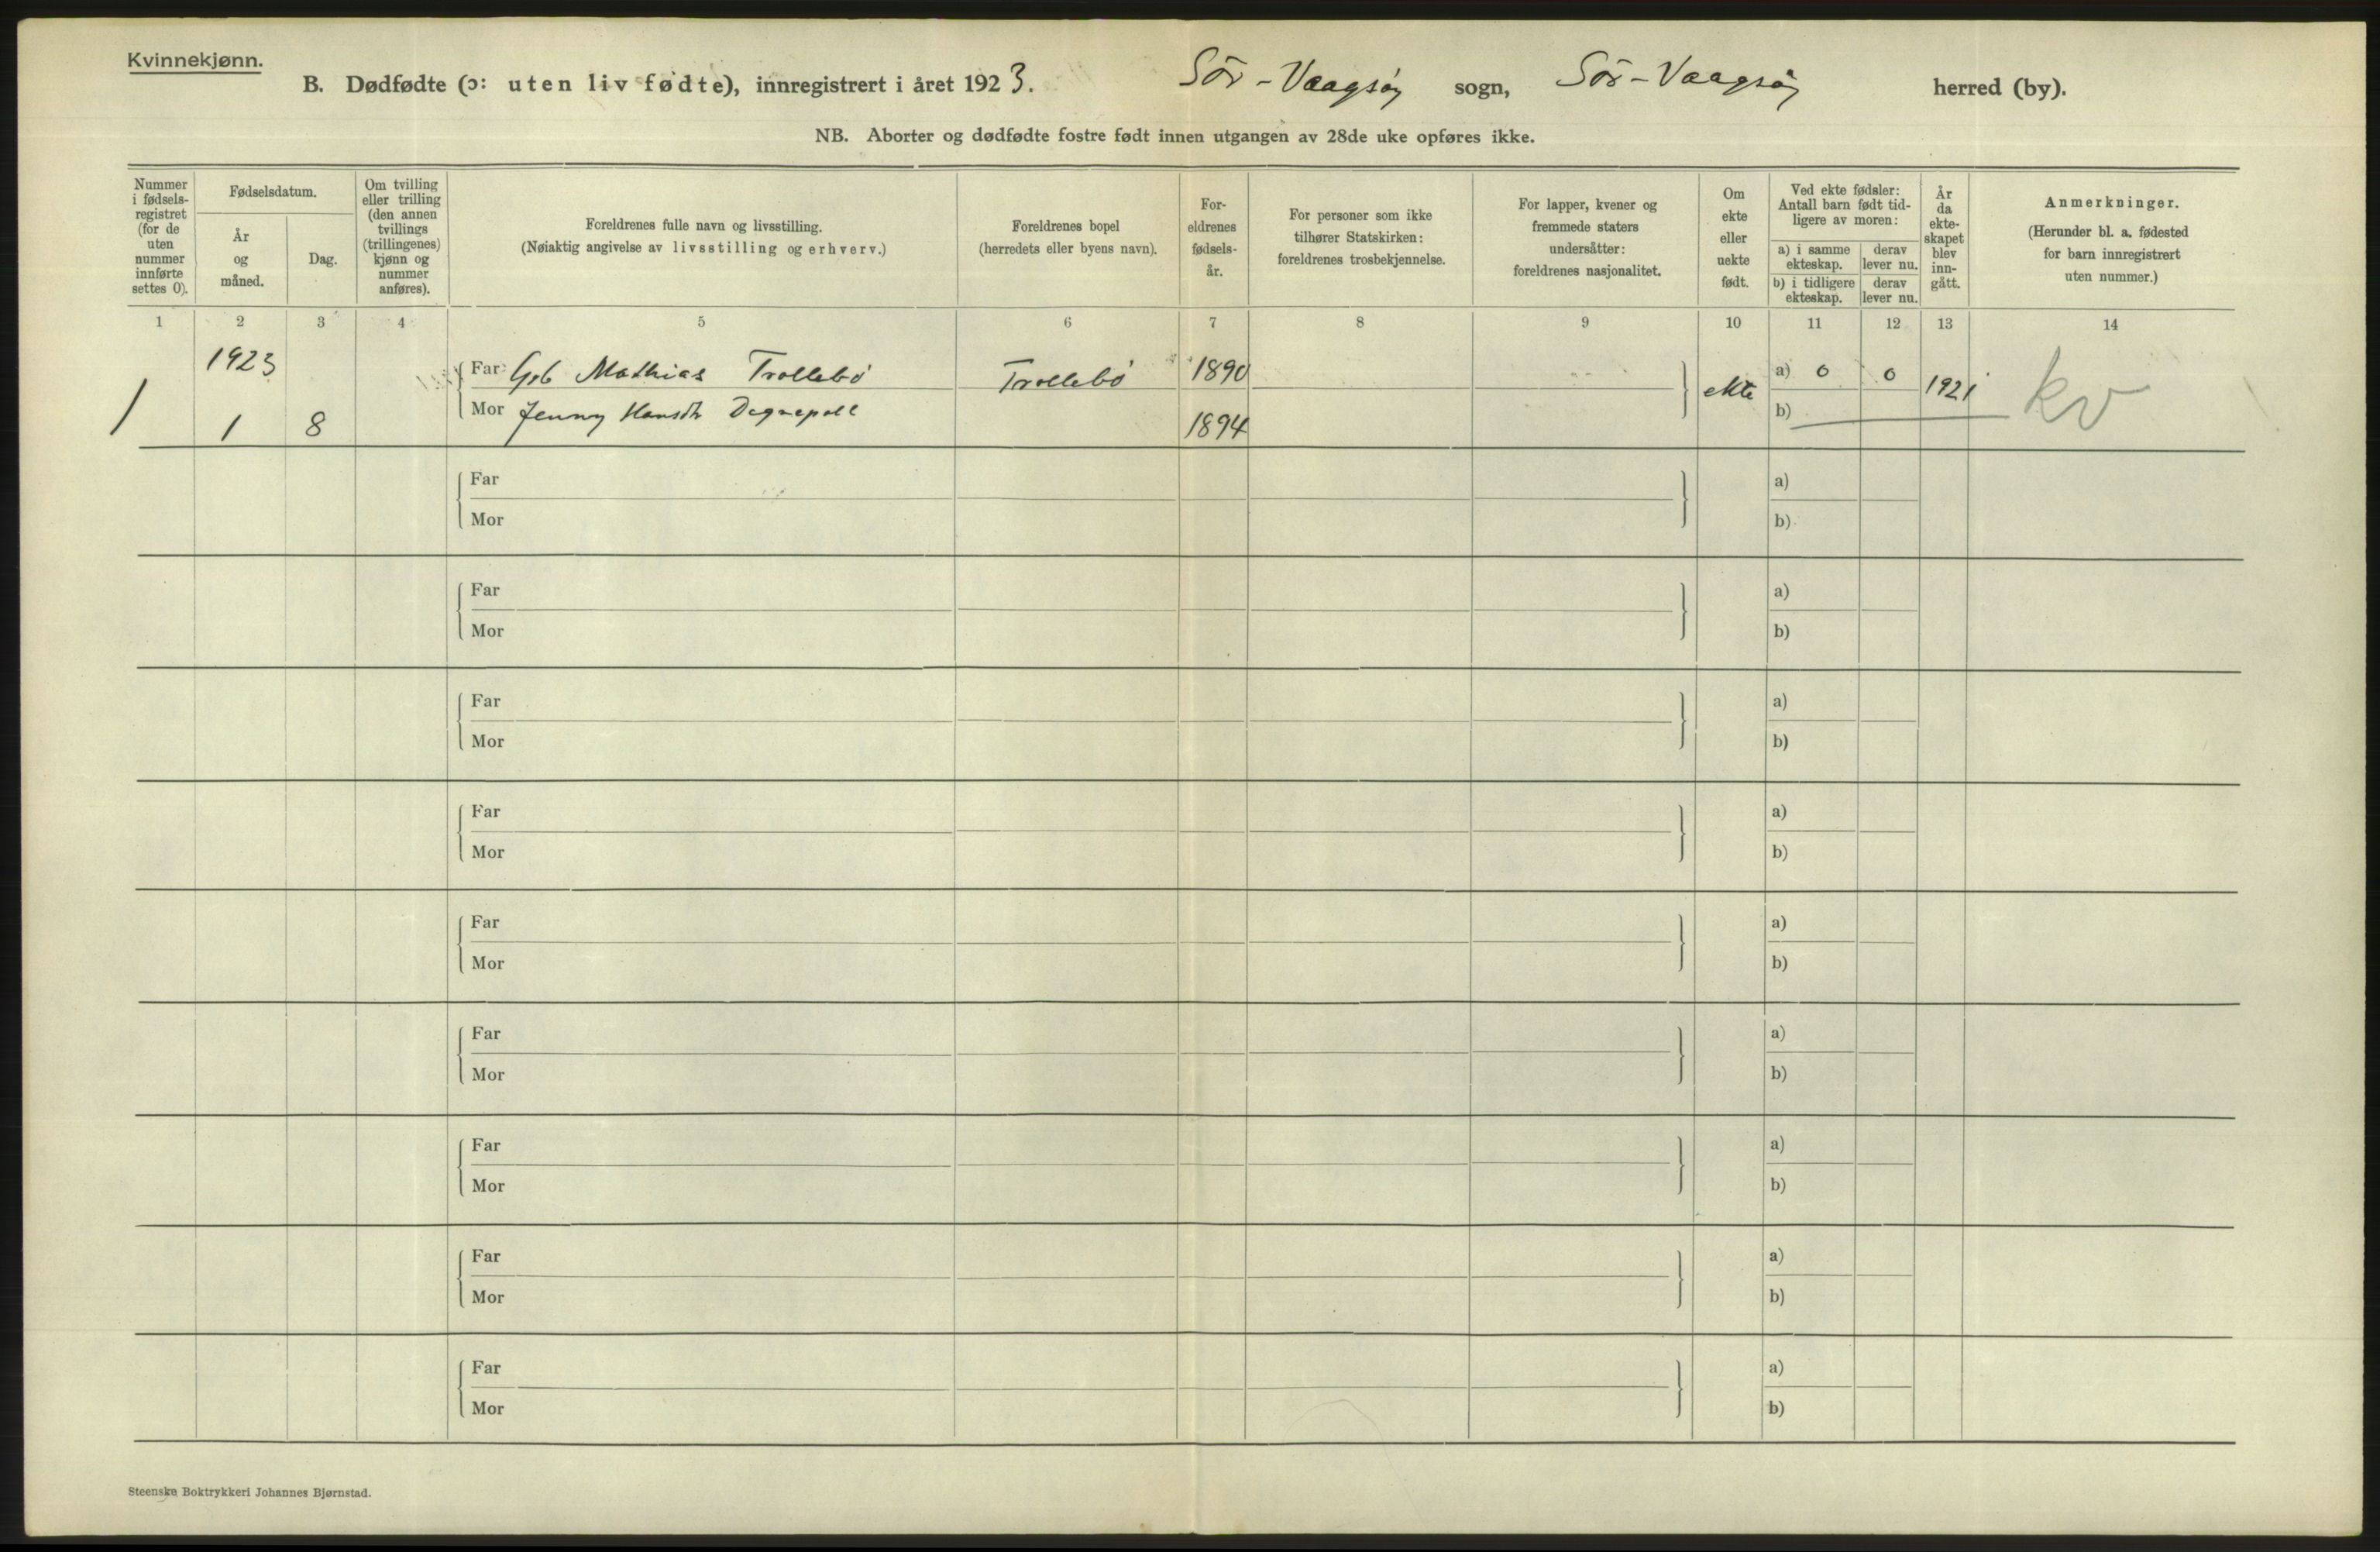 Kvinnekjønn.
B. Dødfødte (ɔ: uten liv fødte), innregistrert i året 1923. Sör-Vaagsöy sogn, Sör-Vaagsöy herred (by).
NB. Aborter og dødfødte fostre født innen utgangen av 28de uke opføres ikke.
Nummer
i fødsels-
registret
(for de
uten
nummer
innførte
settes 0).
Fødselsdatum.
År
og
måned.
Dag.
Om tvilling
eller trilling
(den annen
tvillings
(trillingenes)
kjønn og
nummer
anføres).
Foreldrenes fulle navn og livsstilling.
(Nøiaktig angivelse av livsstilling og erhverv.)
Foreldrenes bopel
(herredets eller byens navn).
For-
eldrenes
fødsels-
år.
For personer som ikke
tilhører Statskirken:
foreldrenes trosbekjennelse.
For lapper, kvener og
fremmede staters
undersåtter:
foreldrenes nasjonalitet.
Om
ekte
eller
uekte
født.
Ved ekte fødsler:
Antall barn født tid-
ligere av moren:
a) i samme
ekteskap.
derav
lever nu.
b) i tidligere
ekteskap.
derav
lever nu.
År
da
ekte-
skapet
blev
inn-
gått.
Anmerkninger.
(Herunder bl. a. fødested
for barn innregistrert
uten nummer.)
1 2 3 4 5 6 7 8 9 10 11 12 13 14
1923
1
1 8
Far Mathias Trollebö Trollebö 1890
Mor Jenny Hansdtr 1894
ekte a) 0 0 1921 kv
b)
Far a)
Mor b)
Far a)
Mor b)
Far a)
Mor b)
Far a)
Mor b)
Far a)
Mor b)
Far a)
Mor b)
Far a)
Mor b)
Far a)
Mor b)
Far a)
Mor b)
Steenske Boktrykkeri Johannes Bjørnstad.